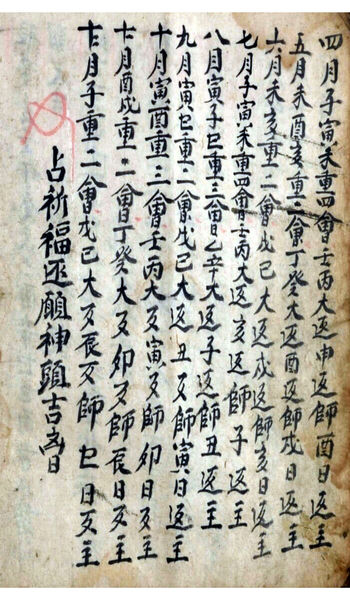 四月子寅未重四會壬丙大返申返師酉日返主
五月未酉亥重三會丁癸大返酉返師戌日返主
六月未亥重二會戊己大返戌返師亥日返主
七月子寅未重四會壬丙大返亥返師子返主
八月寅子巳重三會日乙辛大返子返師丑返主
九月寅巳重二會戊己大返丑反師寅日返主
十月寅酉重三會壬丙大反寅反師卯日反主
十一月酉戌重二會丁癸大反卯反師辰日反主
十二月子重二會戊己大反辰反師巳日反主
占祈福還願神頭吉凶日